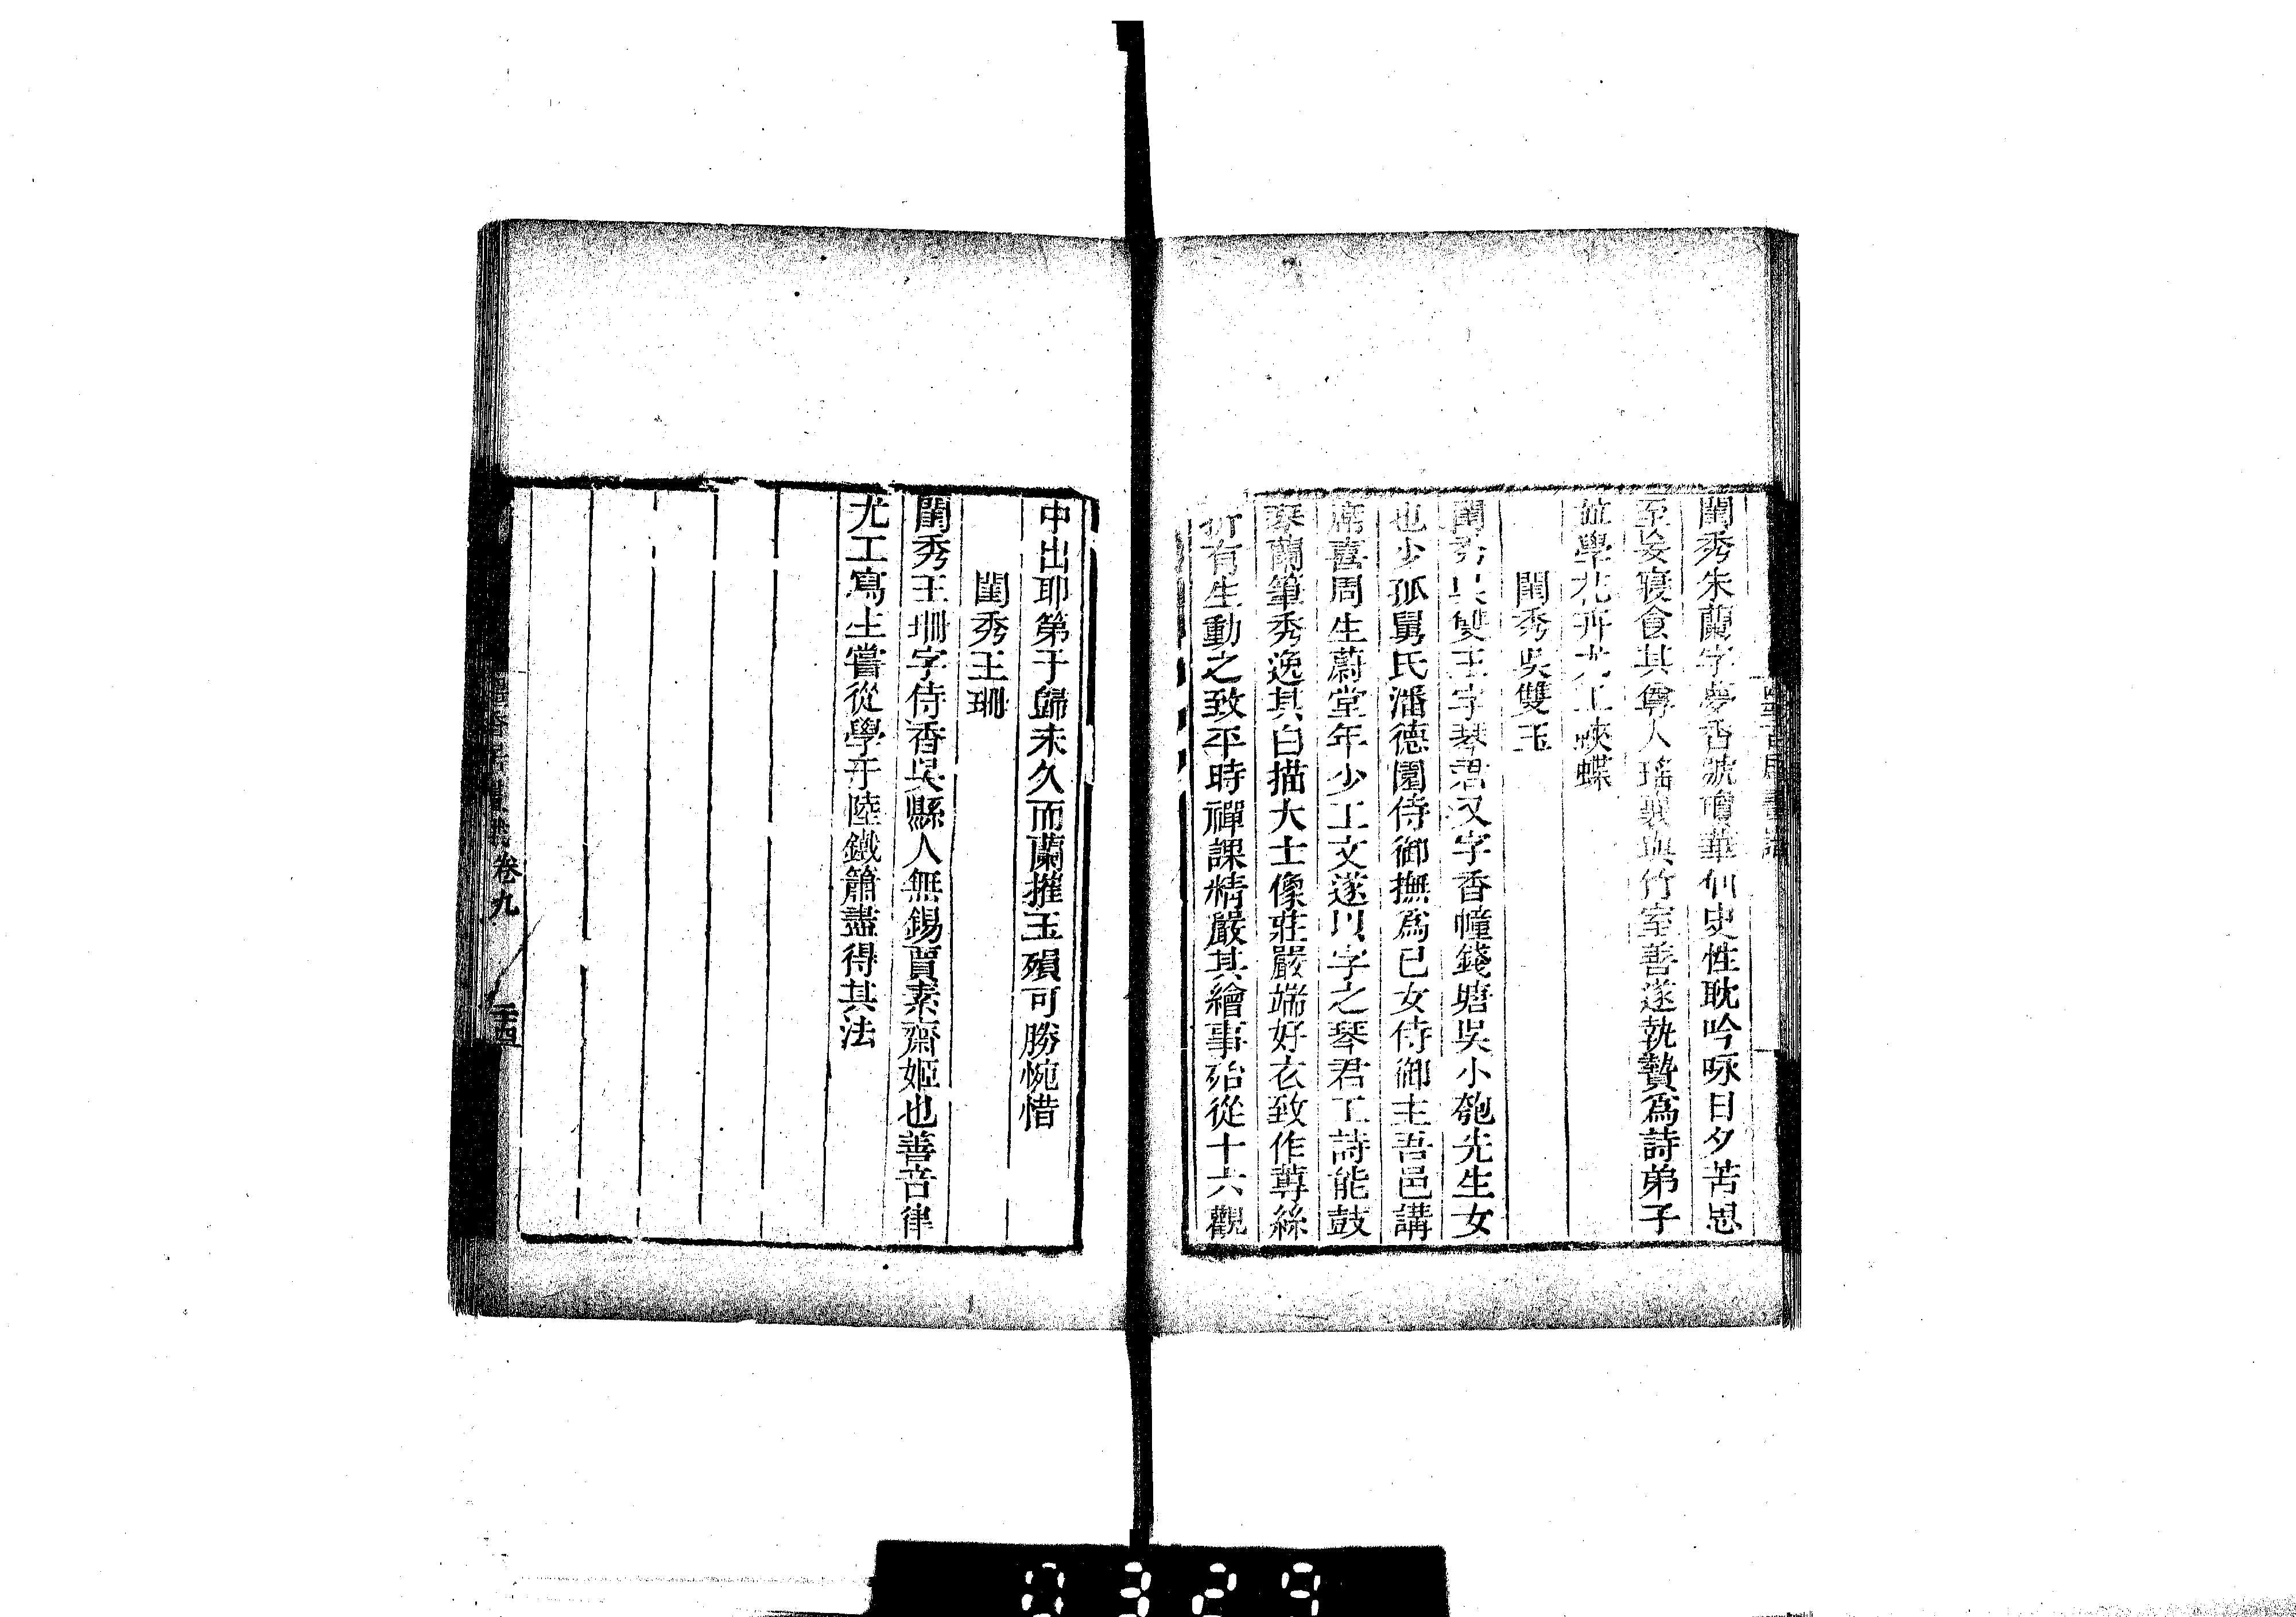 閨秀朱蘭字夢香號瓊華仙史性耽吟咏日夕苦思
至妄寢食其尊人瑤襄與竹室善遂執贄爲詩弟子
竝學花卉尤工蛺蝶
閨秀吳雙玉
閨秀吳雙玉字琴君又字香幢錢塘吳小匏先生女
也少孤舅氏潘德園侍御撫爲己女侍御主吾邑講
席喜周生蔚堂年少工文遂以字之琴君工詩能鼓
琴蘭筆秀逸其白描大士像莊嚴端好衣致作蓴絲
折有生動之致平時禪課精嚴其繪事殆從十六觀
中出耶第于歸未久而蘭摧玉殞可勝惋惜
閨秀王珊
閨秀王珊字侍香吳縣人無錫賈素齋姬也善音律
尤工寫生嘗從學于陸鐵簫盡得其法
卷九
二十四
0329